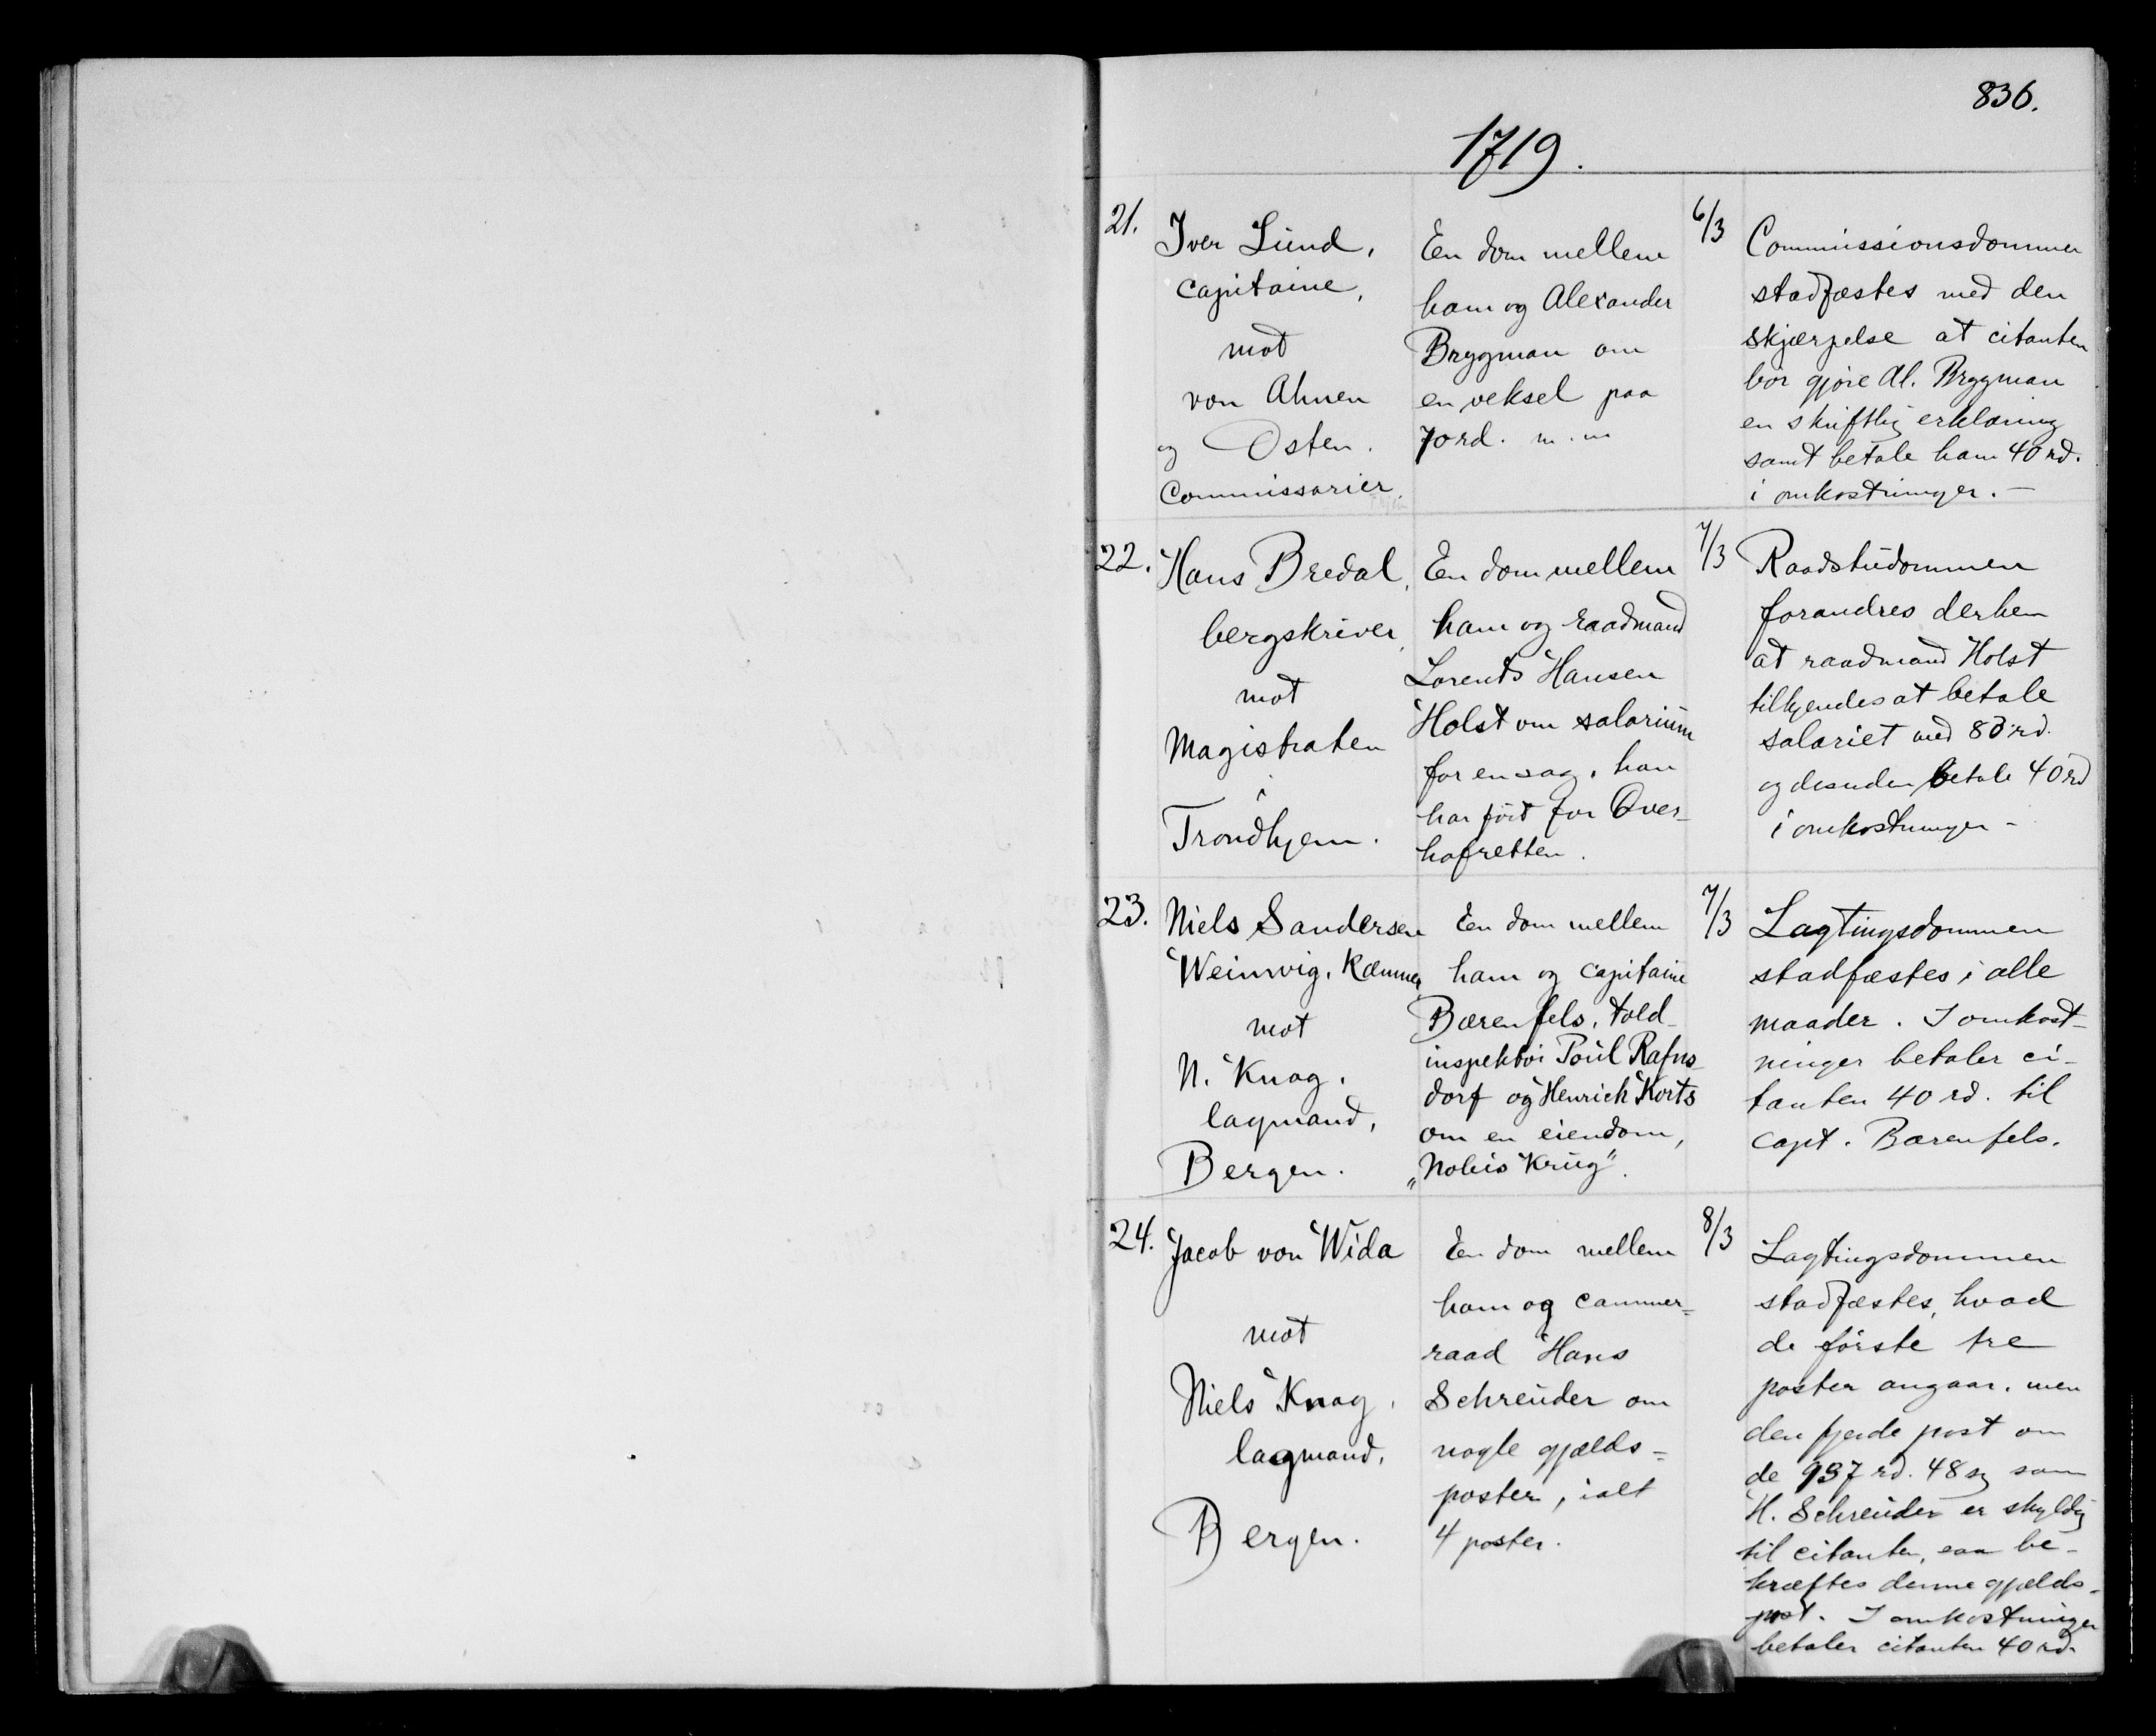 836.
1719.
21.
Iver Lund,
capitaine,
mot
von Ahnen
og Osten.
Commissarier
En dom mellem
ham og Alexander
Brygman om
en veksel paa
70 rd. m.m
6/3
Commissionsdommen
stadfæstes med den
skjærpelse at citanten
bør gjøre Al. Brygman
en skriftlig erklæring
samt betale ham 40 rd.
i omkostninger. —
22.
Hans Bredal,
bergskriver,
mot
Magistraten
i
Trondhjem.
En dom mellem
ham og raadmand
Lorents Hansen
Holst om salarium
for en sag, han
har ført for Over-
hofretten.
7/3
Raadstudommen
forandres derhen
at raadmand Holst
tilkjendes at betale
salariet med 83 rd.
og desuden betale 40 rd
i omkostninger -
23.
Niels Sandersen
Weinwig, Kæmner
mot
N. Knag,
lagmand,
Bergen.
En dom mellem
ham og capitaine
Bærenfels, told-
inspektør Poul Rafns-
dorf og Henrich Korts
om en eiendom,
„Nobis Krug".
7/3
Lagtingsdommen
stadfæstes i alle
maader. I omkost-
ninger betaler ci-
tanten 40 rd. til
capt. Bærenfels.
24.
Jacob von Wida
mot
Niels Knag,
lagmand,
Bergen.
En dom mellem
ham og cammer-
raad Hans
Schreuder om
nogle gjælds-
poster, ialt
4 poster.
8/3
Lagtingsdommen
stadfæstes, hvad
de første tre
poster angaar, men
den fjerde post om
de 937 rd. 48 sz som
H. Schreuder er skyldig
til citanten, saa be-
kræftes denne gjælds-
post. I omkostninger
betaler citanten 40 rd.